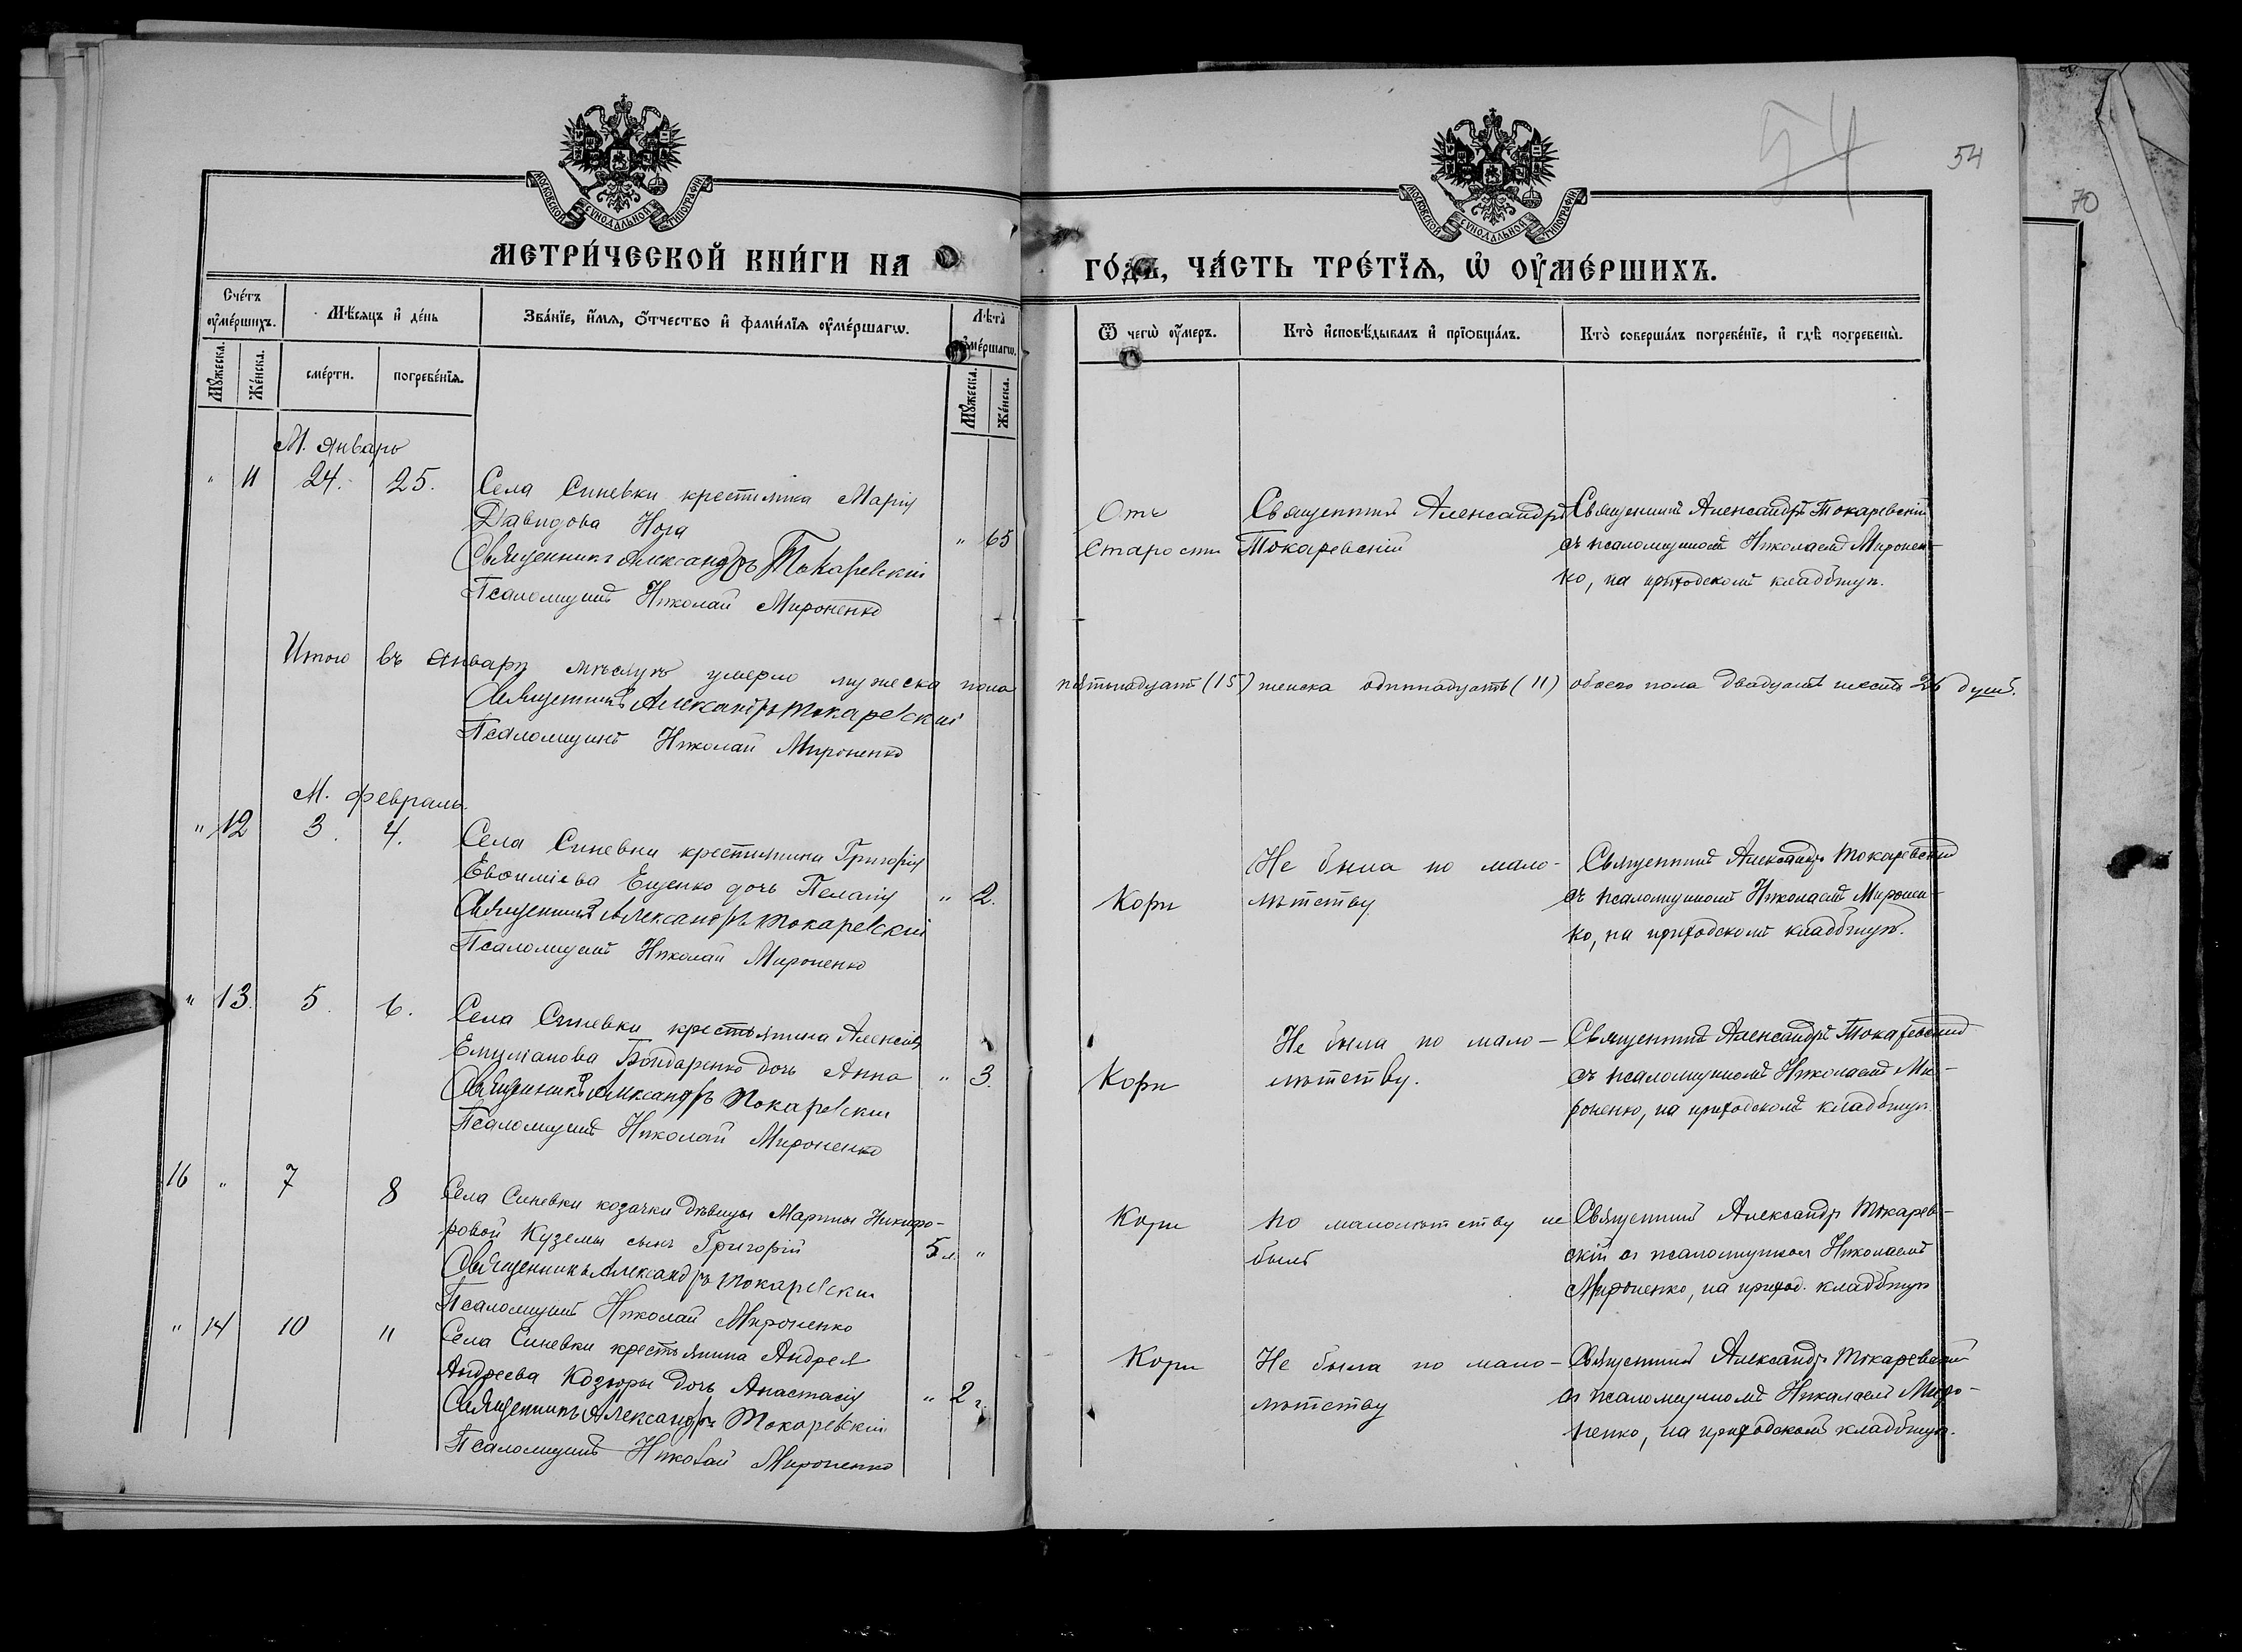 54
54
70
МОСКОВСКОЙ СѴНОДАЛЬНОЙ ТИПОГРАФІИ
МОСКОВСКОЙ СѴНОДАЛЬНОЙ ТИПОГРАФІИ
МЕТРИ́ЧЕСКОЙ КНИ́ГИ НА
ГО́ДЪ, ЧА́СТЬ ТРЕ́ТІѦ, Ѡ҆ ОУ҆МЕ́РШИХЪ.
Сче́тъ оу҆ме́ршихъ.
Мꙋ́жеска.
Же́нска.
Мѣ́сѧцъ и҆ де́нь
сме́рти.
погребе́нїѧ.
Зва́нїе, и҆́мѧ, ѻ҆́тчество и҆ фами́лїѧ оу҆ме́ршагѡ.
Лѣ́та оу҆ме́ршагѡ.
Мꙋ́жеска.
Же́нска.
Ѿ чегѡ̀ оу҆́меръ.
Кто̀ и҆сповѣ́дывалъ и҆ прїѡбща́лъ.
Кто̀ соверша́лъ погребе́нїе, и҆ гдѣ̀ погребены̀.
М. Январь
" 11 24. 25. Села Синевки крестьянка Марія
Давидова Нога " 65
Священникъ Александръ Токаревскій
Псаломщикъ Николай Мироненко
Отъ
Старости
Священникъ Александръ
Токаревскій
Священникъ Александръ Токаревскій
съ псаломщикомъ Николаемъ Миронен-
ко, на приходскомъ кладбищѣ.
Итого въ Январѣ мѣсяцѣ умерло мужеска пола пятьнадцать (15) женска одиннадцать (11) обоего пола двадцать шесть 26 душъ.
Священникъ Александръ Токаревскій
Псаломщикъ Николай Мироненко
М. Февраль.
" 12 3. 4. Села Синевки крестьянина Григорія
Евѳиміева Ещенко дочь Пелагія " 2.
Священникъ Александръ Токаревскій
Псаломщикъ Николай Мироненко
Кори
Не была по мало-
лѣтству
Священникъ Александръ Токаревскій
съ псаломщикомъ Николаемъ Миронен-
ко, на приходскомъ кладбищѣ.
" 13. 5. 6. Села Синевки крестьянина Алексія
Емиліанова Бондаренко дочь Анна " 3.
Священникъ Александръ Токаревскій
Псаломщикъ Николай Мироненко
Кори
Не была по мало-
лѣтству.
Священникъ Александръ Токаревскій
съ псаломщикомъ Николаемъ Ми-
роненко, на приходскомъ кладбищѣ.
16 " 7 8 Села Синевки козачки дѣвицы Марины Никифо-
ровой Куземы сынъ Григорій 5 л. "
Священникъ Александръ Токаревскій
Псаломщикъ Николай Мироненко
Кори
по малолѣтству не
былъ
Священникъ Александръ Токарев-
скій съ псаломщикомъ Николаемъ
Мироненко, на приход. кладбищѣ
" 14 10 11 Села Синевки крестьянина Андрея
Андреева Козюры дочь Анастасія " 2 г.
Священникъ Александръ Токаревскій
Псаломщикъ Николай Мироненко
Кори
Не была по мало-
лѣтству
Священникъ Александръ Токаревскій
съ псаломщикомъ Николаемъ Миро-
ненко, на приходскомъ кладбищѣ.